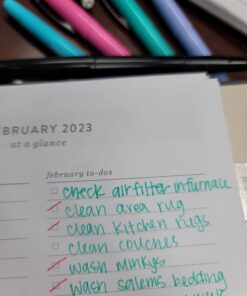 EBRUARY 2023
at a glance
february to-dos
check airfilter in furnace
clean area rug
clean kitchen rugs
clean couches
wash minkys
wash salems bedding